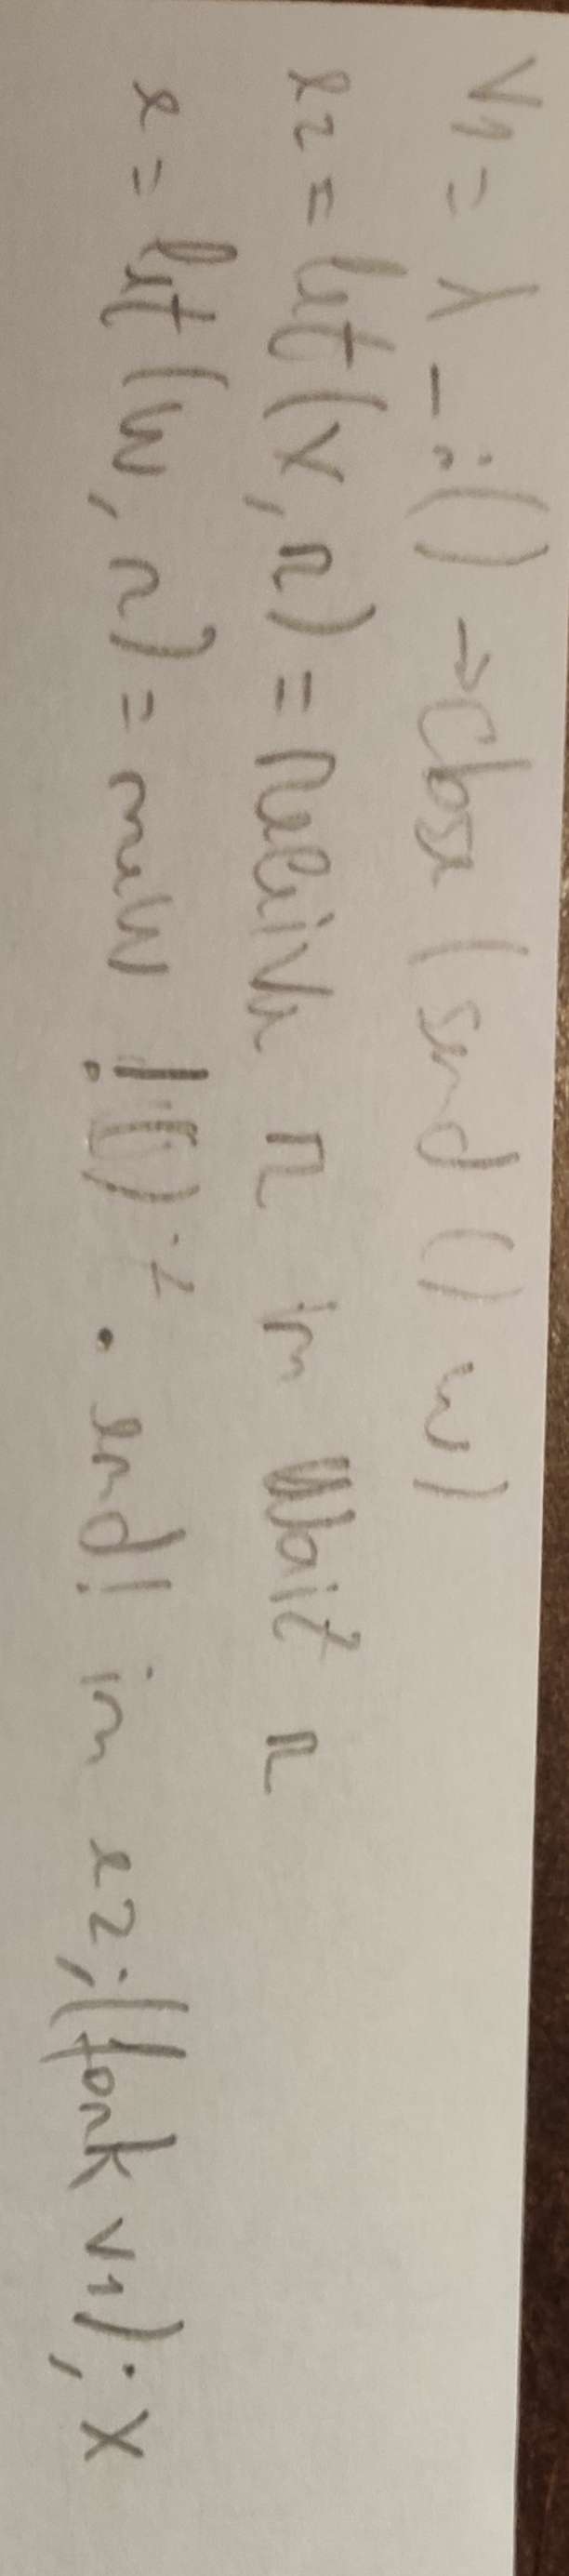 v1 = λ _:() → close (send () w)
e2 = let (x, r) = receive r in wait r
e = let (w, r) = new !()¹ . end! in e2; (fork v1); x